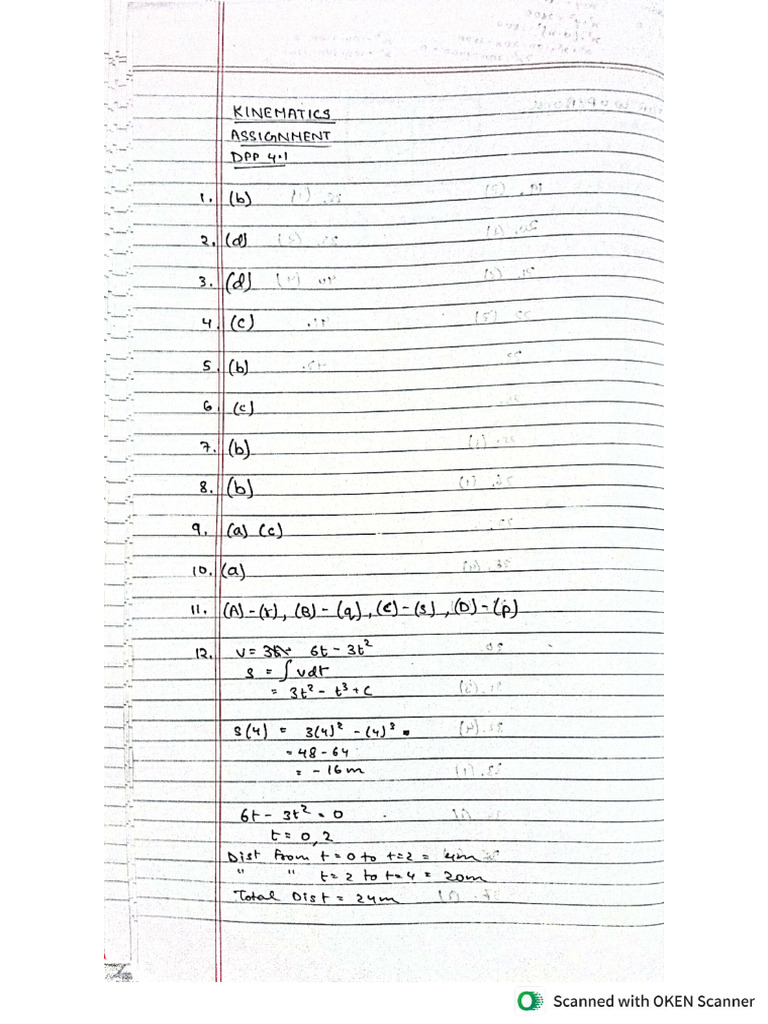 KINEMATICS
ASSIGNMENT
DPP 4.1
1. (b)
2. (d)
3. (d)
4. (c)
5. (b)
6. (c)
7. (b)
8. (b)
9. (a) (c)
10. (a)
11. (A)-(r), (B)-(q), (C)-(s), (D)-(p)
12. v = 6t - 3t²
s = ∫vdt
= 3t² - t³ + c
s(4) = 3(4)² - (4)³ =
= 48 - 64
= -16m
6t - 3t² = 0
t = 0, 2
Dist from t=0 to t=2 = 4m
" " t=2 to t=4 = 20m
Total Dist = 24m
Scanned with OKEN Scanner